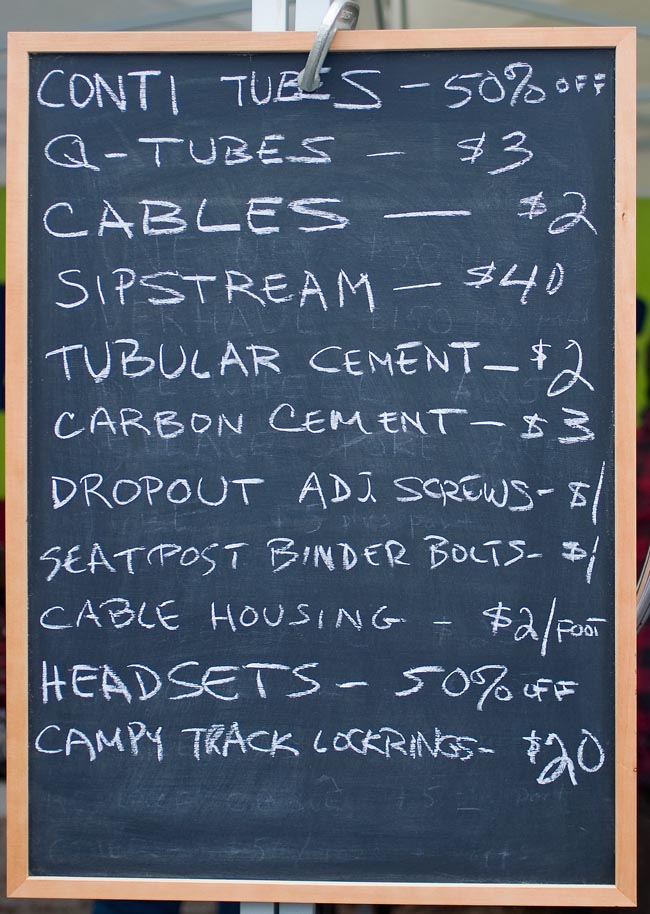 CONTI TUBES - 50% OFF
Q-TUBES - $3
CABLES — $2
SIPSTREAM - $40
TUBULAR CEMENT - $2
CARBON CEMENT - $3
DROPOUT ADJ SCREWS - $1
SEATPOST BINDER BOLTS - $1
CABLE HOUSING - $2/FOOT
HEADSETS - 50% OFF
CAMPY TRACK LOCKRINGS - $20